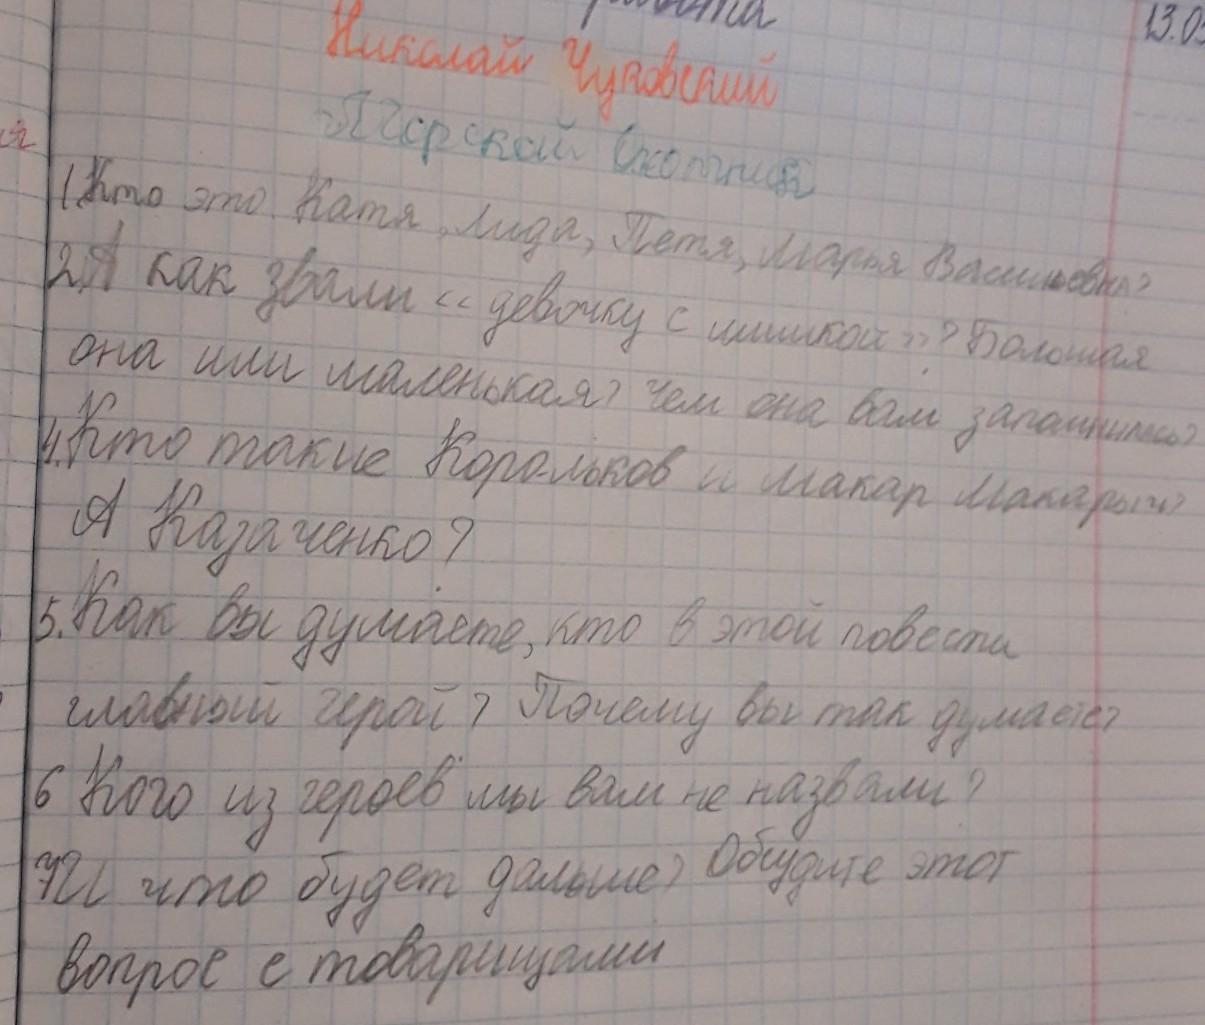 работа
13.05
Николай Чуковский
Морской Охотник
1.Кто это Катя, Лида, Петя, Марья Васильевна?
2.А как звали «девочку с шишкой»? Большая
она или маленькая? Чем она вам запомнилась?
4.Кто такие Корольков и Макар Макарыч?
А Казаченко?
5.Как вы думаете, кто в этой повести
главный герой? Почему вы так думаете?
6 Кого из героев мы вам не назвали?
7И что будет дальше? Обсудите этот
вопрос с товарищами